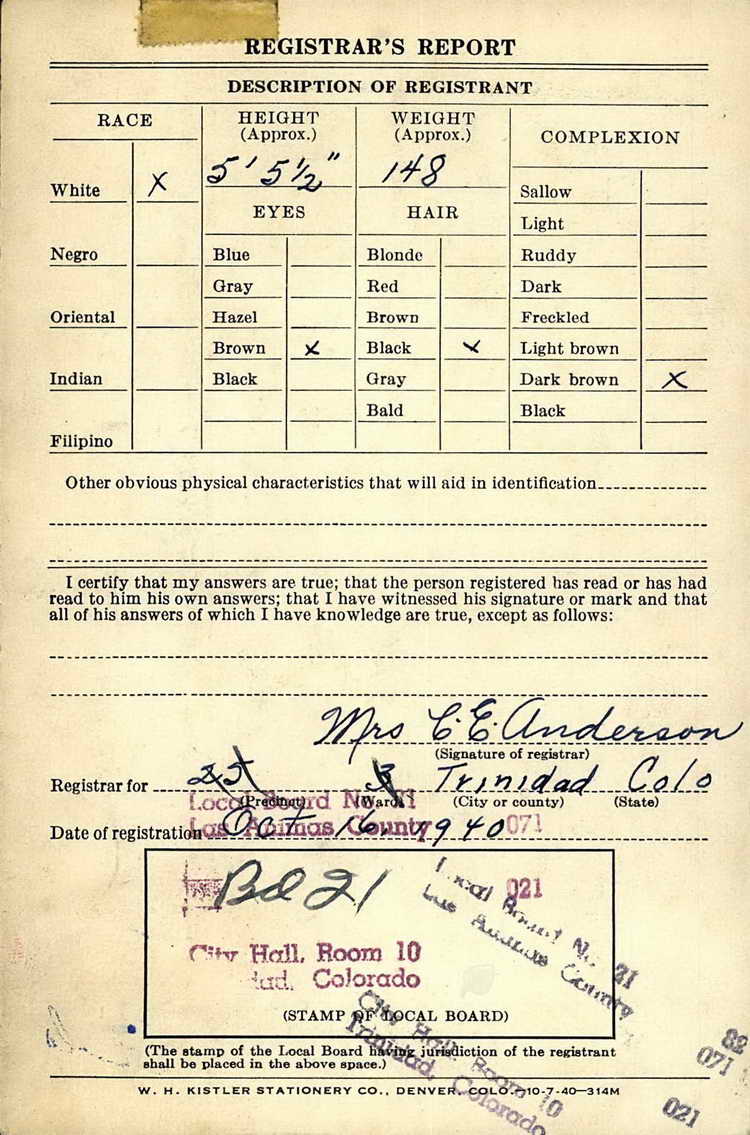 REGISTRAR'S REPORT
DESCRIPTION OF REGISTRANT
RACE
HEIGHT
(Approx.)
WEIGHT
(Approx.)
COMPLEXION
5' 5 1/2"
148
White X
Sallow
EYES
HAIR
Light
Negro
Blue
Blonde
Ruddy
Gray
Red
Dark
Oriental
Hazel
Brown
Freckled
Brown X
Black X
Light brown
Indian
Black
Gray
Dark brown X
Bald
Black
Filipino
Other obvious physical characteristics that will aid in identification
I certify that my answers are true; that the person registered has read or has had
read to him his own answers; that I have witnessed his signature or mark and that
all of his answers of which I have knowledge are true, except as follows:
Mrs C. E. Anderson
(Signature of registrar)
Registrar for 25 3 Trinidad Colo
(Precinct) (Ward) (City or county) (State)
Local Board No. 21
Date of registration Oct 16, 1940
Las Animas County 071
Bd 21
021
City Hall, Room 10
Colorado
Local Board No. 21
Las Animas County
(STAMP OF LOCAL BOARD)
City Hall, Room 10
Trinidad, Colorado
(The stamp of the Local Board having jurisdiction of the registrant
shall be placed in the above space.)
82
071
021
W. H. KISTLER STATIONERY CO., DENVER, COLO. 10-7-40—314M